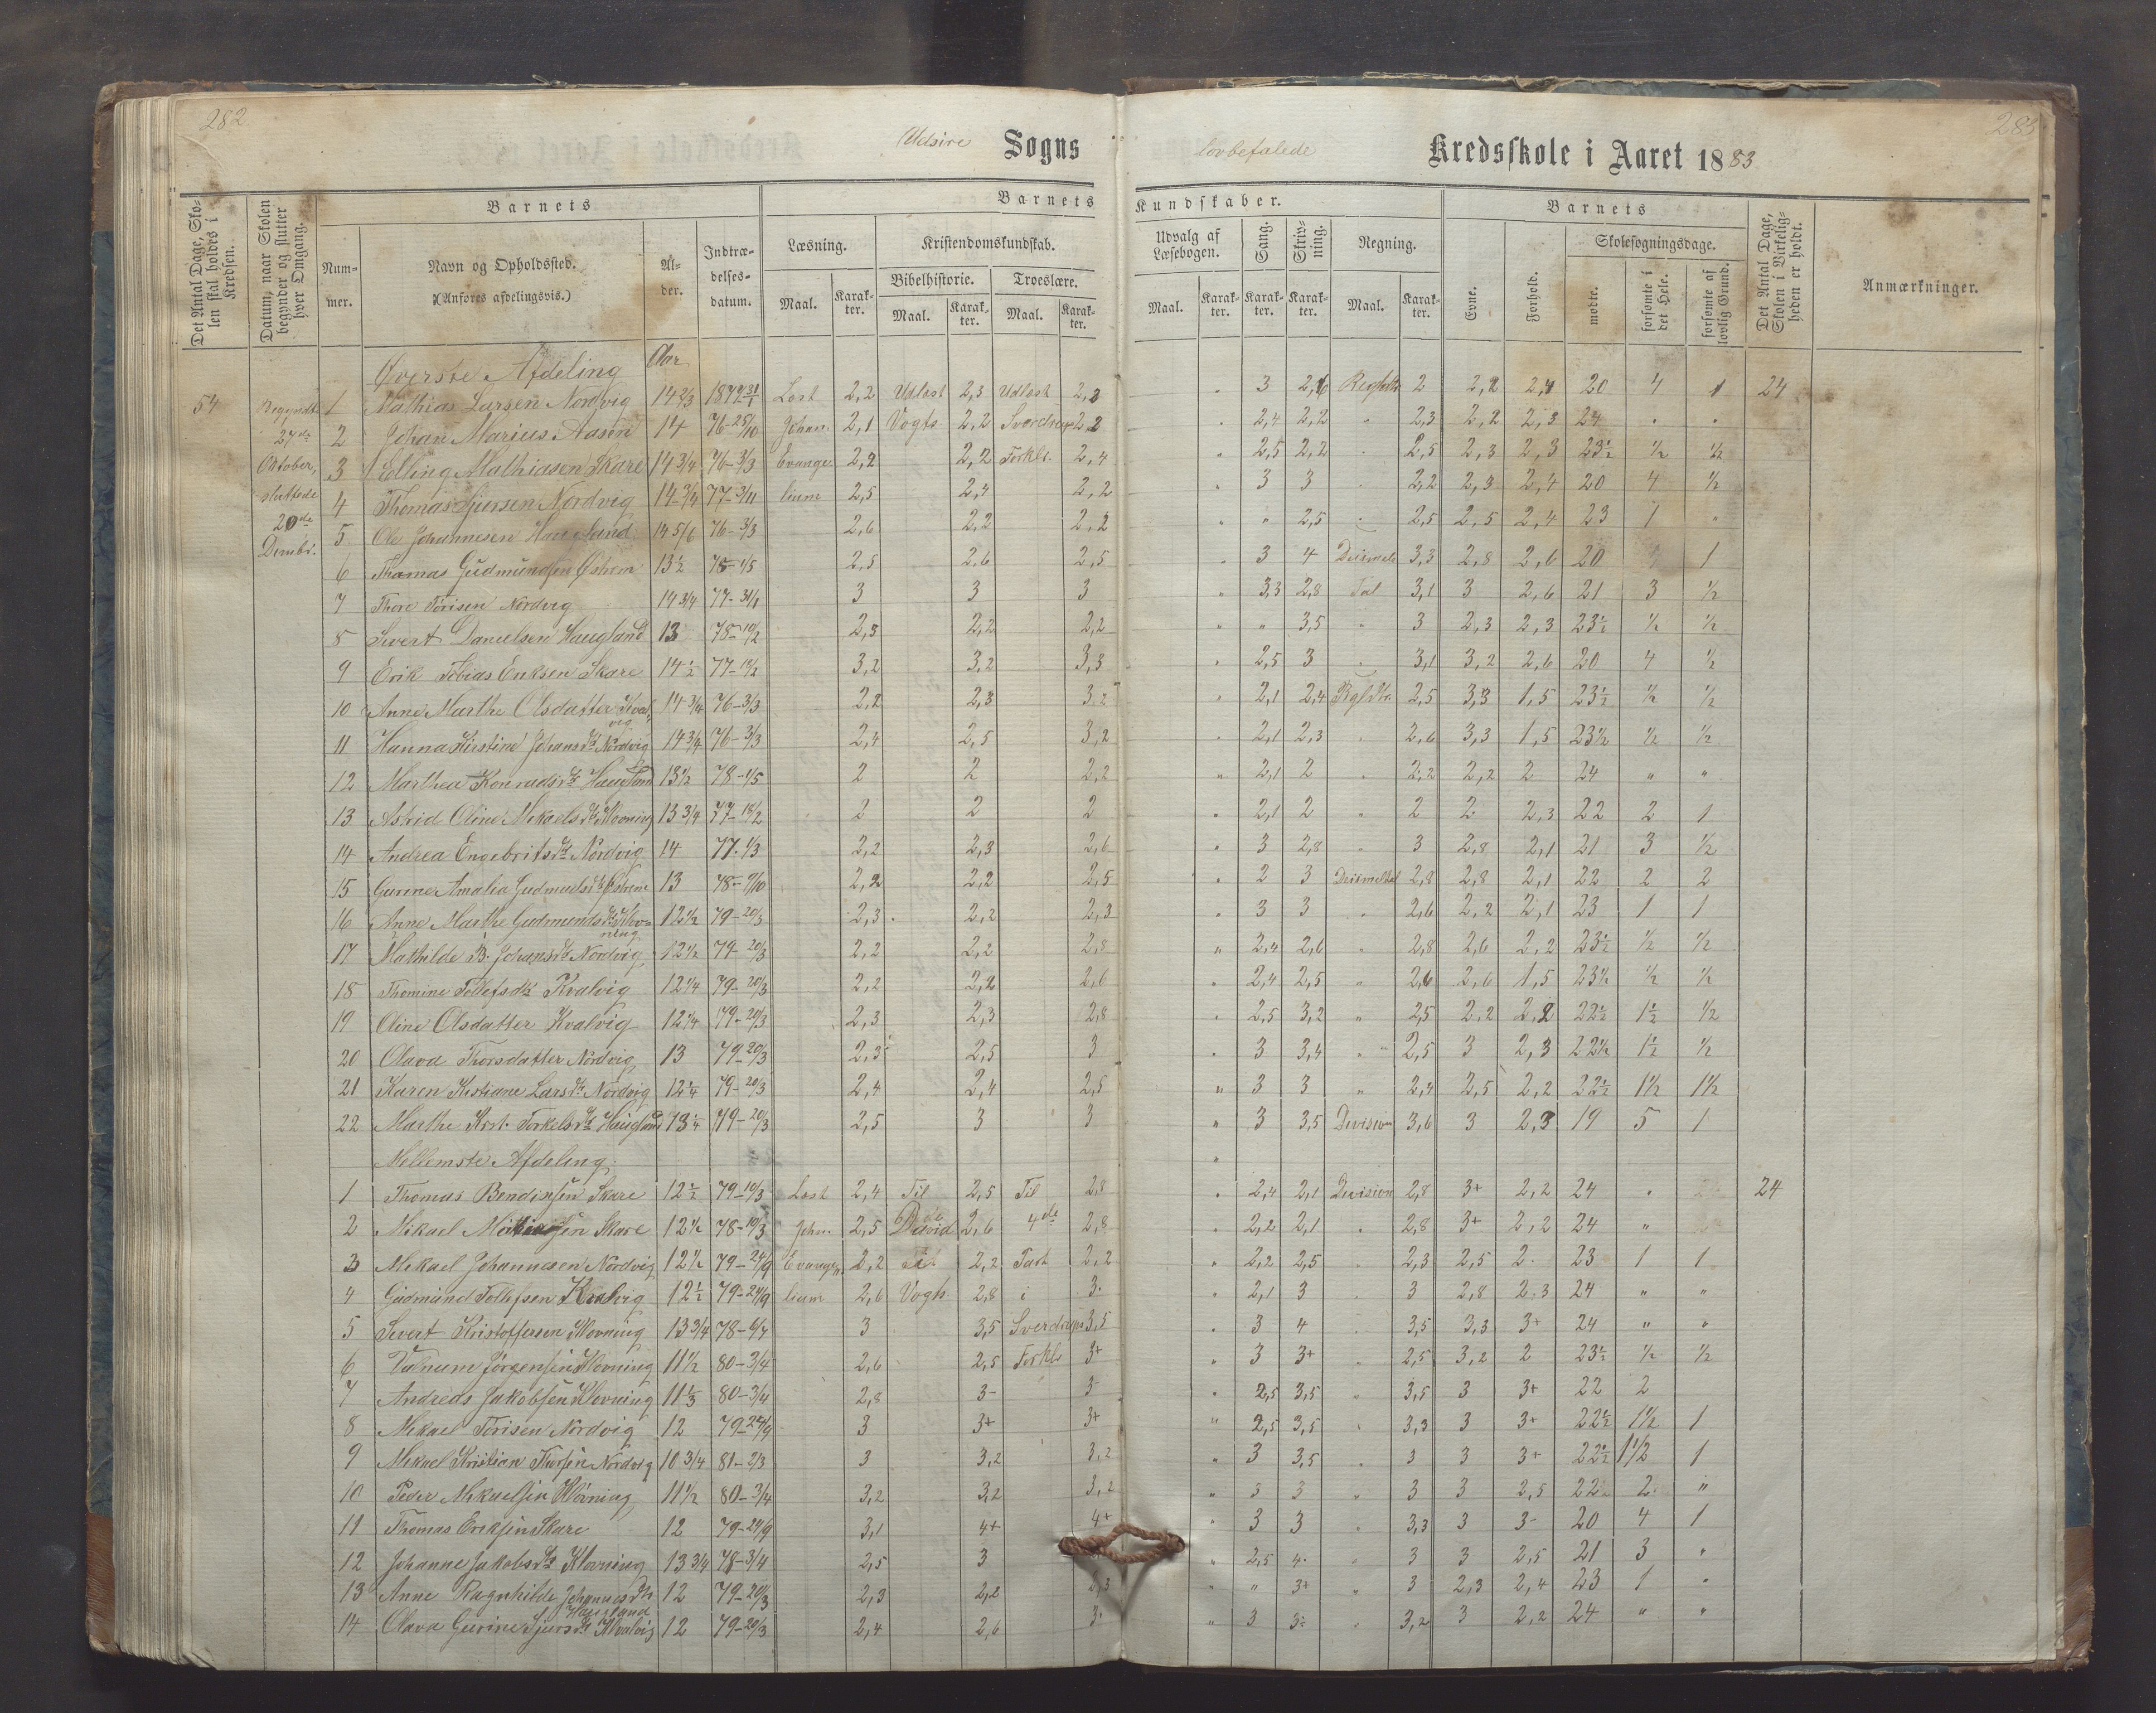 282
283
Udsire Sogns lovbefalede Kredsskole i Aaret 1883
Det Antal Dage, Skolen skal holdes i Kredsen.
Datum, naar Skolen begynder og slutter hver Omgang.
Barnets
Nummer.
Navn og Opholdssted.
(Anføres afdelingsvis.)
Alder.
Indtrædelsesdatum.
Barnets Kundskaber.
Læsning.
Maal. Karakter.
Kristendomskundskab.
Bibelhistorie.
Maal. Karakter.
Troeslære.
Maal. Karakter.
Udvalg af Læsebogen.
Maal. Karakter.
Sang.
Karakter.
Skrivning.
Karakter.
Regning.
Maal. Karakter.
Barnets
Evne.
Forhold.
Skolesøgningsdage.
mødte.
forsømte i det Hele.
forsømte af lovlig Grund.
Det Antal Dage, Skolen i Virkeligheden er holdt.
Anmærkninger.
54
Begyndte
27de
Oktober,
sluttede
20de
Dcmbr.
Øverste Afdeling Aar
1 Mathias Larsen Nordvig 14 2/3 Læst 2,2 Udlæst 2,3 Udlæst " 3 2 20 4 1 24
2 Johan Marius Aasen 14 76-28/10 Johan. 2,1 Vogts 2,2 2,2 " 2,4 2,2 " 2,3 2,2 2,3 24 " "
3 Elling Mathiasen Skare 14 3/4 76-3/3 Evange 2,2 2,2 Forkl. 2,4 " 2,5 2,2 " 2,5 2,3 2,3 23½ ½ ½
4 Thomas Sjursen Nordvig 14 3/4 77-3/11 lium 2,5 2,4 2,2 " 3 3 " 2,2 2,3 2,4 20 4 ½
5 Ole Johannesen Haugland 14 5/6 76-3/3 2,6 2,2 2,2 " " 2,5 " 2,5 2,5 2,4 23 1 "
6 Thomas Gudmundsen Østrem 13½ 78-1/5 2,5 2,6 2,5 " 3 4 Desimale 3,3 2,8 2,6 20 1
7 Thore Torisen Nordvig 14 3/4 77-31/1 3 3 3 " 3,3 2,8 Tal 3,1 3 2,6 21 3 ½
8 Sivert Danielsen Haugland 13 78-10/2 2,3 2,2 2,2 " " 3,5 " 3 2,3 2,3 23½ ½ ½
9 Erik Tobias Eriksen Skare 14½ 77-18/2 3,2 3,2 3,3 " 2,5 3 " 3,1 3,2 2,6 20 4 ½
10 Anne Marthe Olsdatter Kvalvig 14 3/4 76-3/3 2,2 2,3 3,2 " 2,1 2,4 2,5 3,3 1,5 23½ ½ ½
11 Hanna Kirstine Johansdt Nordvig 14 3/4 76-3/3 2,4 2,5 3,2 " 2,1 2,3 " 2,6 3,3 1,5 23½ ½ ½
12 Marthea Konradsdt Haugland 13½ 78-1/5 2 2 2,2 " 2,1 2 " 2,2 2,2 2 24 " "
13 Astrid Oline Mikaelsdt Klovning 13 3/4 77-18/2 2 2 2 " 2,1 2 " 2 2 2,3 22 2 1
14 Andrea Engebritsdt Nordvig 14 77-1/3 2,2 2,3 2,6 " 3 2,8 " 3 2,8 2,1 21 3 ½
15 Gurine Amalia Gudmundsdt Østrem 13 78-9/10 2,2 2,2 2,5 " 2 3 Desimaltal 2,8 2,8 2,1 22 2 2
16 Anne Marthe Gudmundsdt Klovning 12½ 79-20/3 2,3 2,2 2,3 " 3 3 " 2,6 2,2 2,1 23 1 1
17 Mathilde B. Johansdt Nordvig 12½ 79-20/3 2,2 2,2 2,8 " 2,4 2,6 " 2,8 2,6 2,2 23½ ½ ½
18 Thomine Tollefsdt Kvalvig 12¼ 79-20/3 2,2 2,2 2,6 " 2,4 2,5 " 2,6 2,6 1,5 23½ ½ ½
19 Oline Olsdatter Kvalvig 12¼ 79-20/3 2,3 2,3 2,8 " 2,5 3,2 " 2,5 2,2 2,2 22½ 1½ ½
20 Olava Thorsdatter Nordvig 13 79-20/3 2,3 2,5 3 " 3 3,4 " 2,5 3 2,3 22½ 1½ ½
21 Karen Kistiane Larsdt Nordvig 12¼ 79-20/3 2,4 2,4 2,5 " 3 3 " 2,4 2,5 2,2 22½ 1½ 1½
22 Marthe Krst. Torkelsdt Haugland 13¼ 79-20/3 2,5 3 3 " 3 3,5 Devision 3,6 3 2,3 19 5 1
Mellemste Afdeling. "
1 Thomas Bendiksen Skare 12½ 79-10/3 Læst 2,4 Til 2,5 Til 2,8 " 2,4 2,1 Devision 2,8 3+ 2,2 24 " 24
2 Mikael Mathiasen Skare 12½ 78-10/3 Johan. 2,5 David 2,6 4de 2,8 " 2,2 2,1 " 2,8 3+ 2,2 24 "
3 Mikael Johannesen Nordvig 12½ 79-24/9 Evange 2,2 2,2 Part 2,2 " 2,2 2,5 " 2,3 2,5 2 23 1 1
4 Gudmund Tollefsen Kvalvig 12½ 79-24/9 lium 2,6 Vogts 2,8 i 3 " 2,1 3 " 3 2,8 2,3 24 " "
5 Sivert Kristoffersen Klovning 13 3/4 78-6/7 3 3,5 Sverdrups 3,5 " 3 4 " 3,5 3,3 3+ 24 " "
6 Valnum Jørgensen Klovning 11½ 80-3/4 2,6 2,5 Forkl. 3+ " 3 3+ " 2,5 3,2 2 23½ ½ ½
7 Andreas Jakobsen Klovning 11⅓ 80-3/4 2,8 3- 3- " 2,5 3,5 " 3,5 3 3+ 22 2
8 Mikael Torisen Nordvig 12 79-24/9 3 3+ 3+ " 2,5 3,5 " 3,3 3 3+ 22½ 1½ 1
9 Mikael Kristian Thorsen Nordvig 10 3/4 81-2/3 3 3,2 3,2 " 3 3,5 " 3 3 3+ 22½ 1½ 1
10 Peder Mikaelsen Klovning 11½ 80-3/4 3,2 3,2 3,2 " 3 3 " 3 3 2,5 22 2 "
11 Thomas Eriksen Skare 12 79-24/9 3,1 4+ 4+ " 3 3 " 3,3 3 3- 20 4 1
12 Johanne Jakobsdt Klovning 13 3/4 78-3/4 2,5 3 " 2,5 4- " 3 3 2,5 21 3 "
13 Anne Ragnhilde Johannesdt Haugland 12 79-20/3 2,3 2,2 2,3 " " 3+ " 3 2,3 2,4 23 1 "
14 Olava Gurine Sjursdt Kvalvig 12 79-20/3 2,4 2,6 3- " 3 3- " 3,2 3 2,2 24 " "